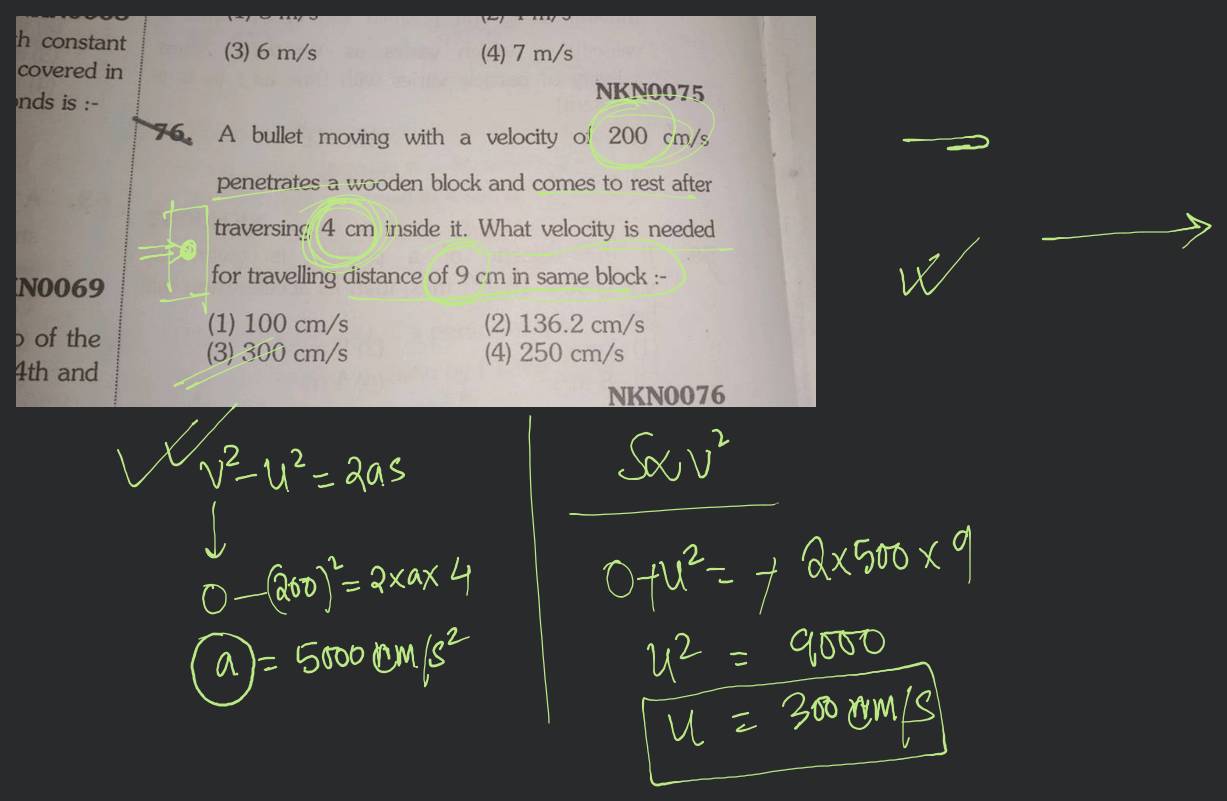 h constant
covered in
onds is :-
N0069
o of the
4th and
(3) 6 m/s
(4) 7 m/s
NKN0075
76. A bullet moving with a velocity of 200 cm/s
penetrates a wooden block and comes to rest after
traversing 4 cm inside it. What velocity is needed
for travelling distance of 9 cm in same block :-
(1) 100 cm/s
(2) 136.2 cm/s
(3) 300 cm/s
(4) 250 cm/s
NKN0076
v²-u² = 2as
0-(200)² = 2×a×4
a = 5000 cm/s²
S∝v²
0+u² = + 2×500×9
u² = 9000
u = 300 cm/s